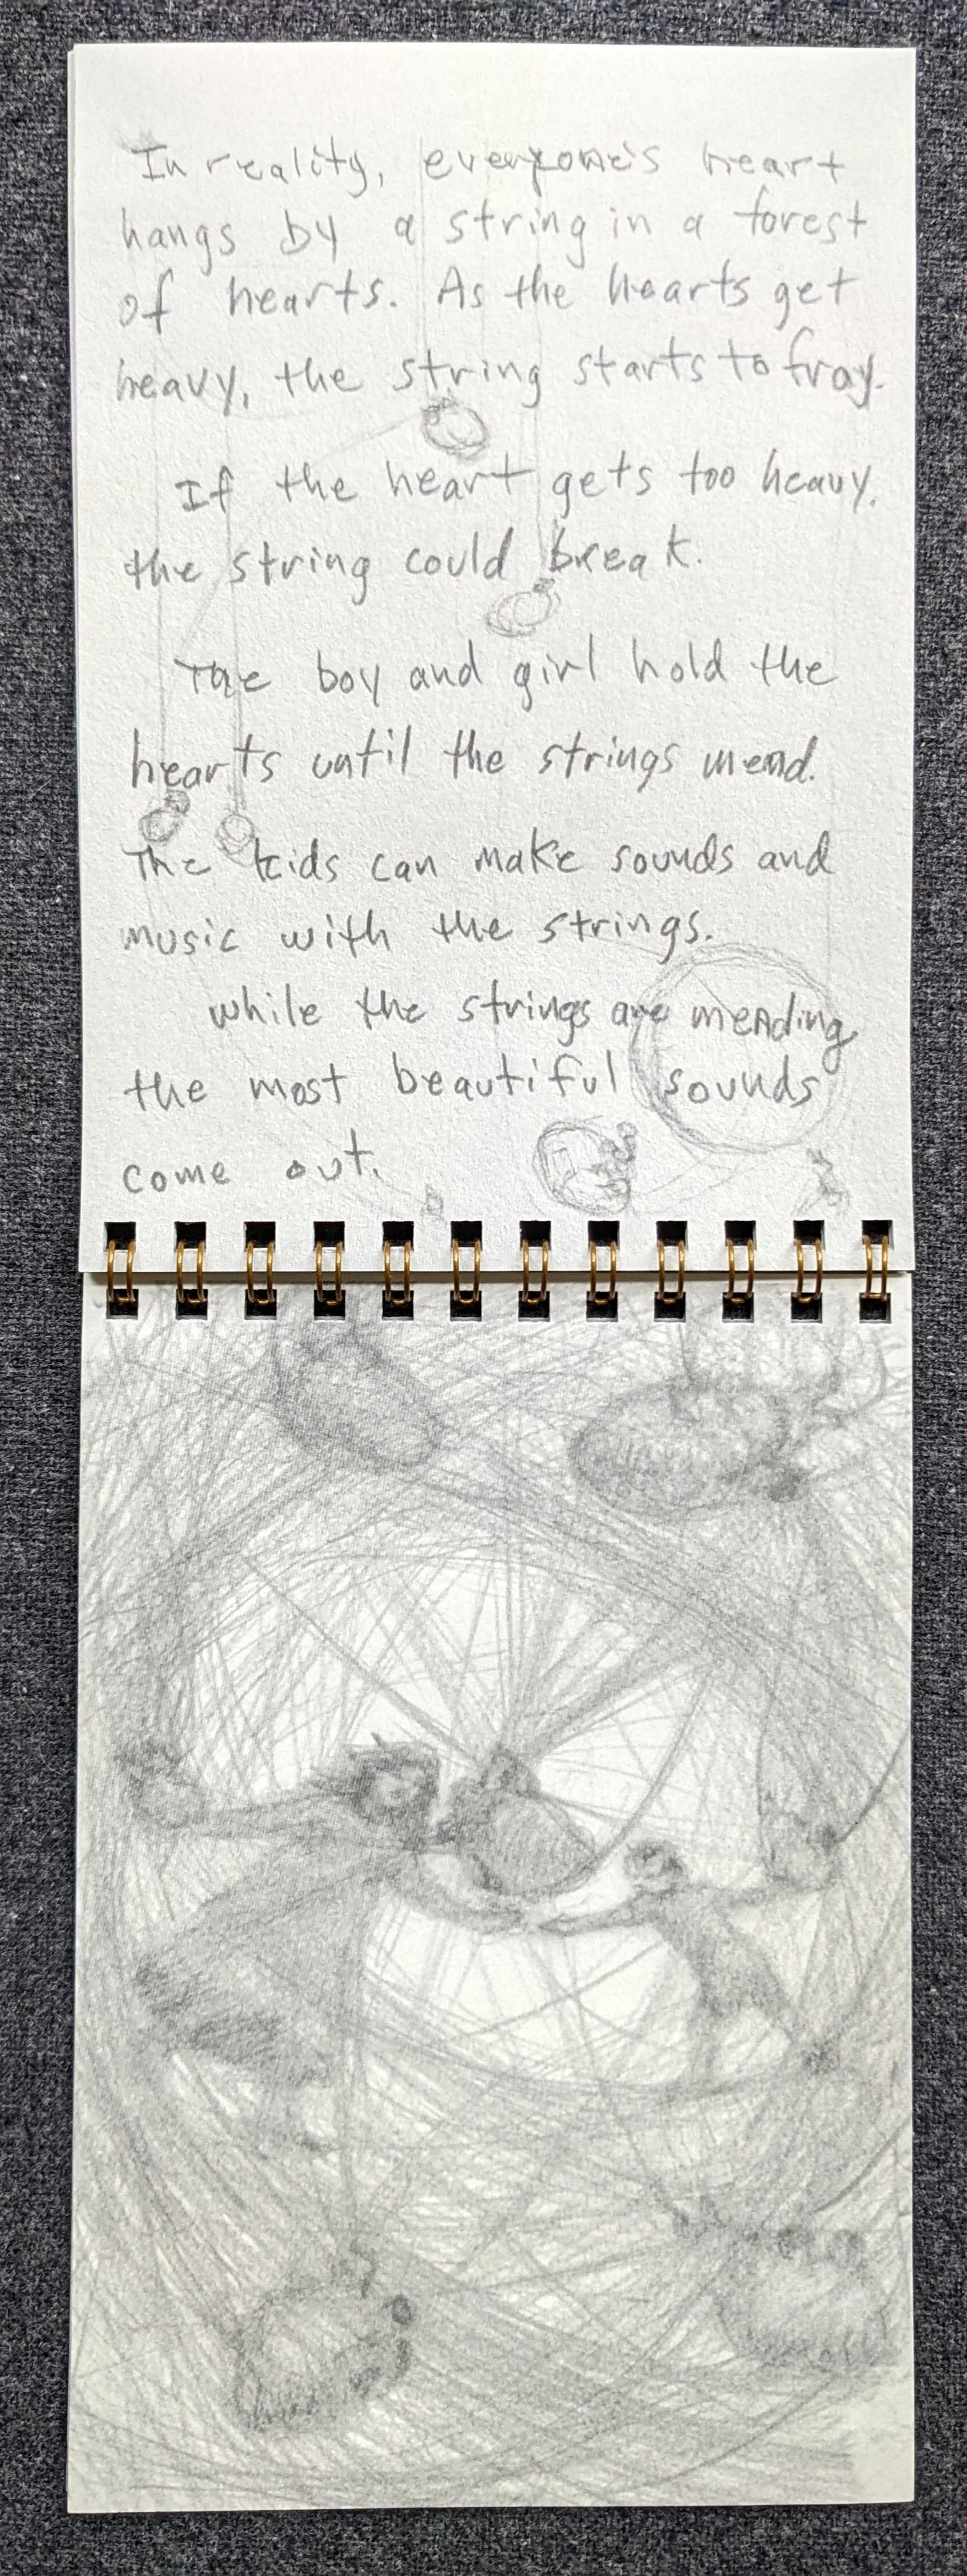 In reality, everyone's heart
hangs by a string in a forest
of hearts. As the hearts get
heavy, the string starts to fray.
If the heart gets too heavy,
the string could break.
The boy and girl hold the
hearts until the strings mend.
The kids can make sounds and
music with the strings.
while the strings are mending
the most beautiful sounds
come out.